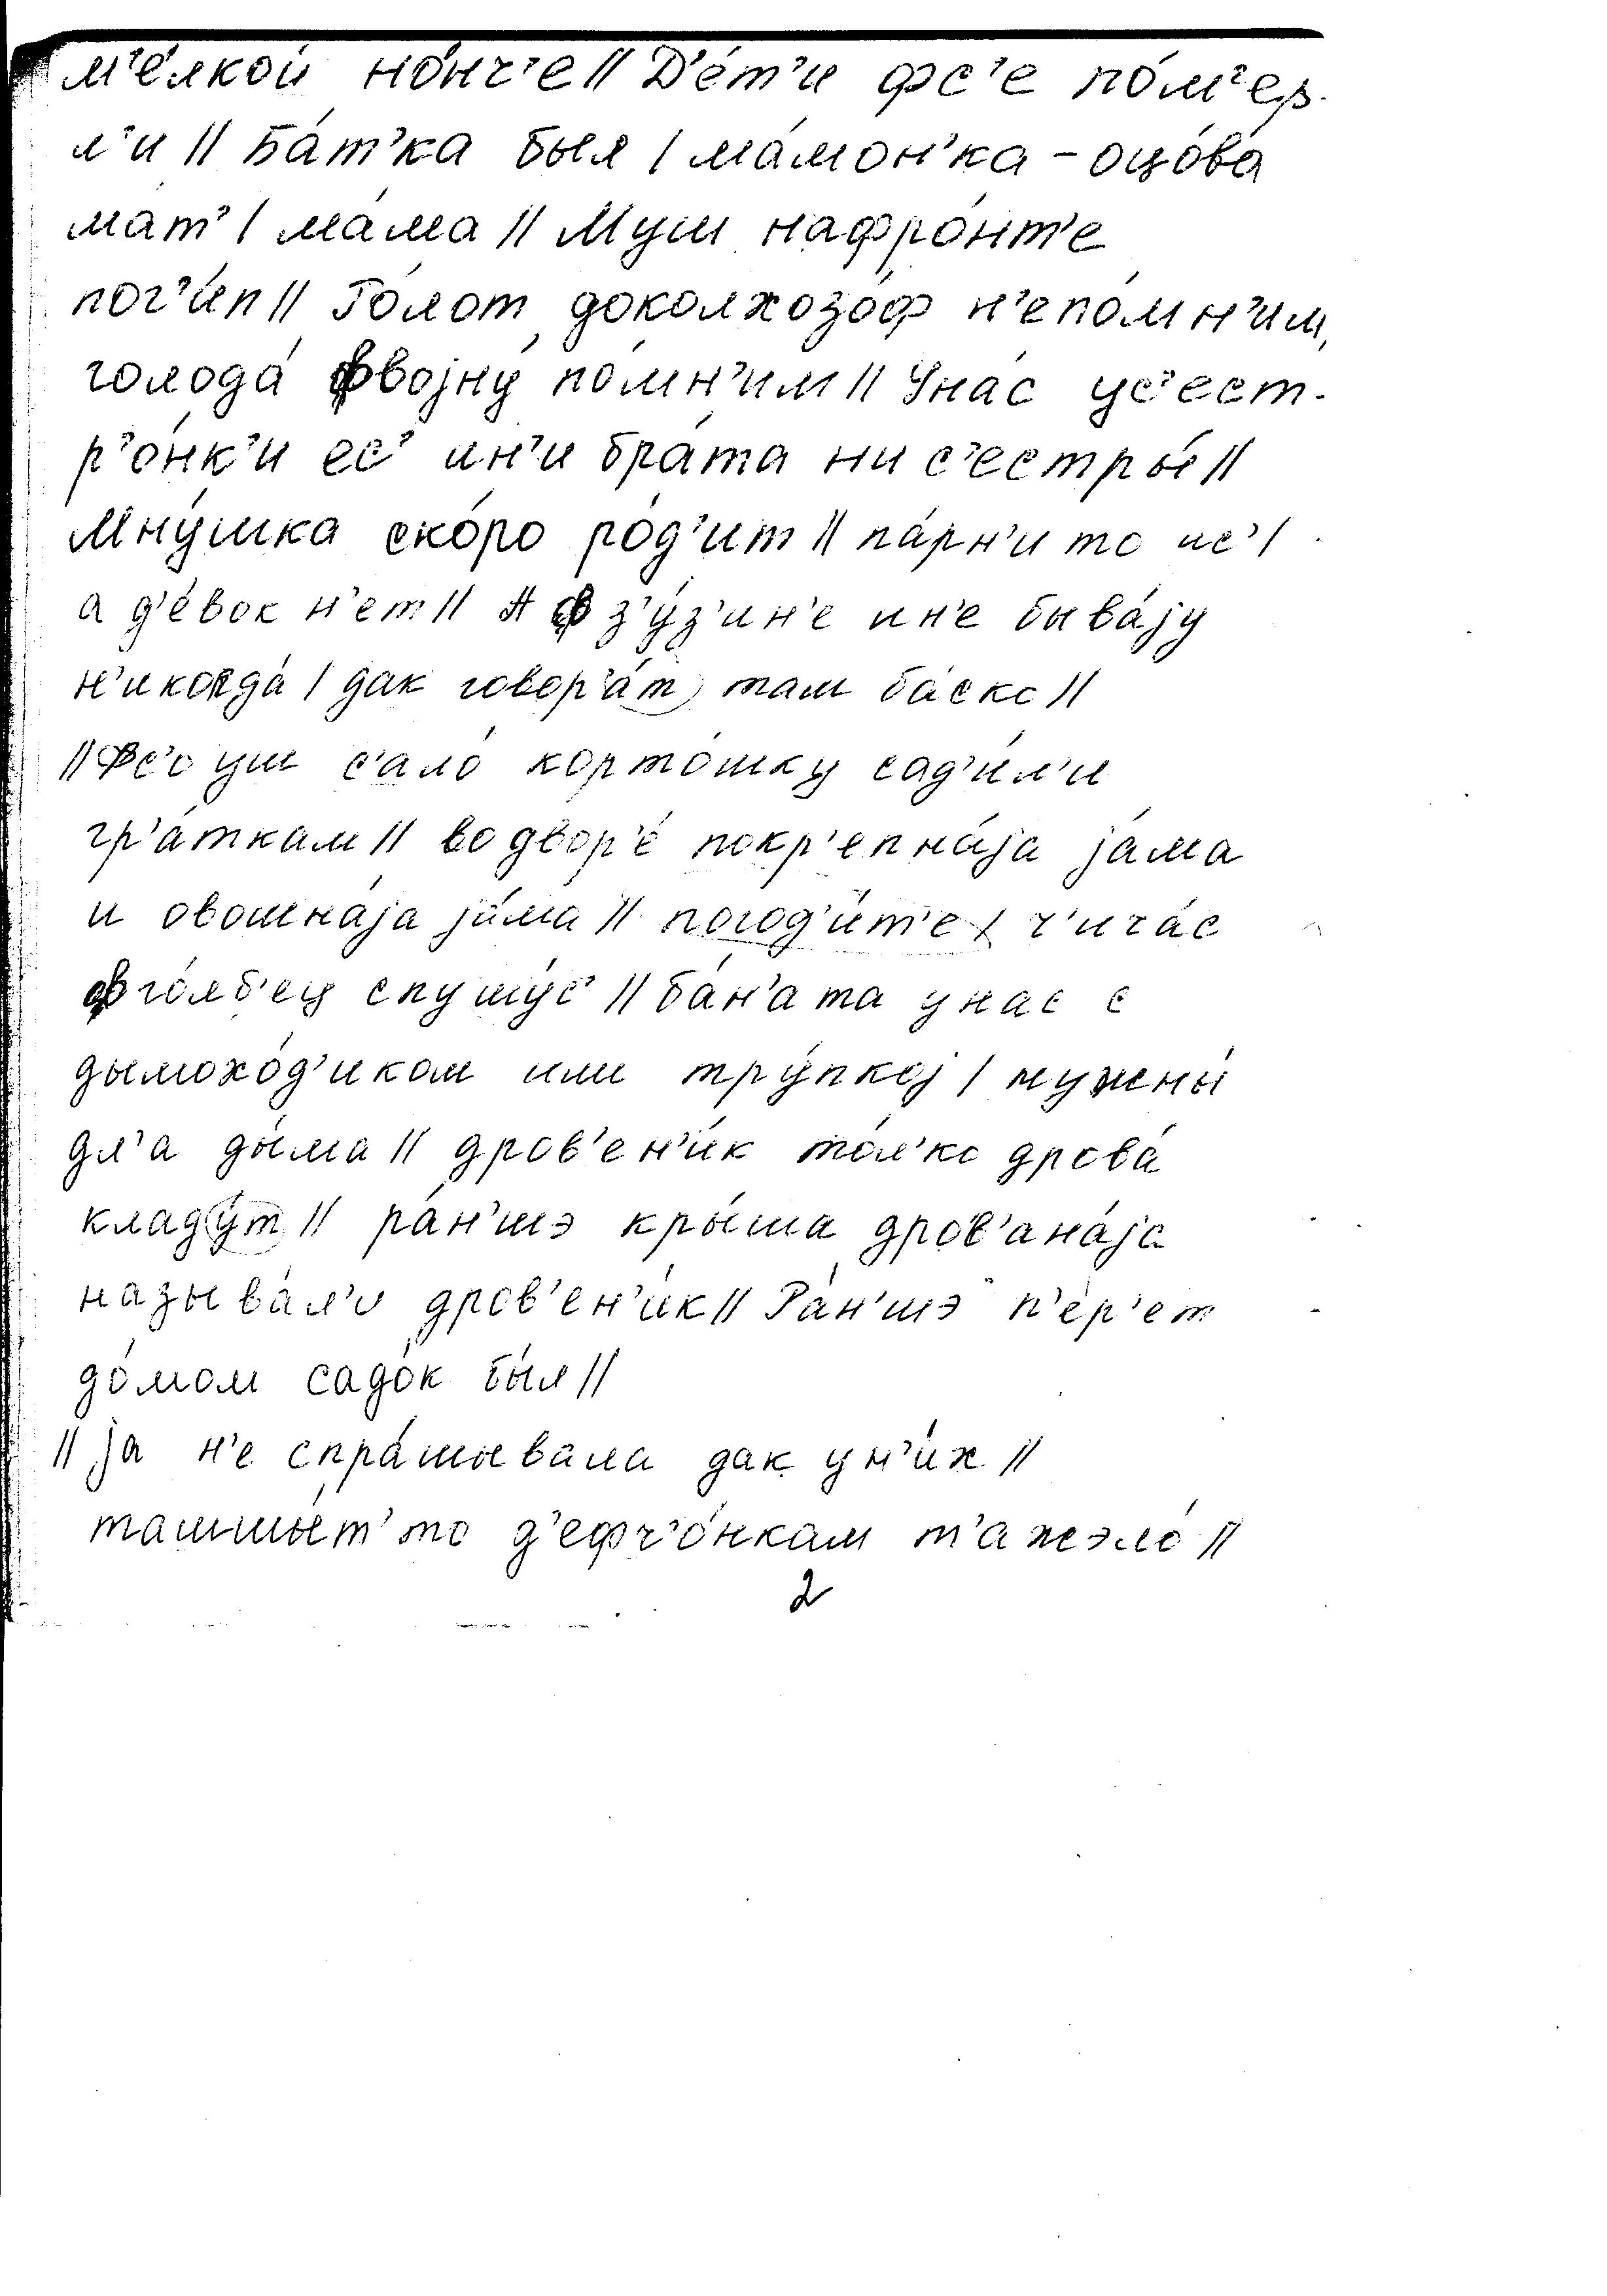 м'е́лкой но́нч'е // Д'е́т'и фс'е по́м'ер-
л'и // Ба́т'ка был / ма́мон'ка - оцо́ва́
мат' / ма́ма // Муш нафро́нт'е
пог'и́п // Го́лот доколхозо́ф н'епо́мн'им,
голода́ фвоjну́ по́мн'им // Уна́с ус'ест-
р'о́нк'и ес' ин'и бра́та ни с'естры́ //
Мну́шка ско́ро ро́д'ит // па́рн'и то ис' /
а д'е́вок н'ет // А ф з'у́з'ин'е ин'е быва́jу
н'икогда́ / дак говор'а́т там ба́ско //
// Фс'о уш с'ало́ корто́шку сад'и́л'и
гр'а́ткам // во двор'е́ покр'епна́jа jа́ма
и овошна́jа jа́ма // погод'и́т'е / ч'ича́с
фго́лб'ец спушу́с' // ба́н'а та унас с
дымохо́д'иком или тру́пкоj / нужны́
дл'а ды́ма // дров'ен'и́к то́л'ко дрова́
кладу́т // ра́н'шэ кры́ша дров'ана́jа
называ́л'и дров'ен'и́к // Ра́н'шэ п'е́р'ет
до́мом садо́к был //
// jа н'е спра́шывала дак ун'и́х //
ташшы́т' то д'ефч'о́нкам т'ажэло́ //
2